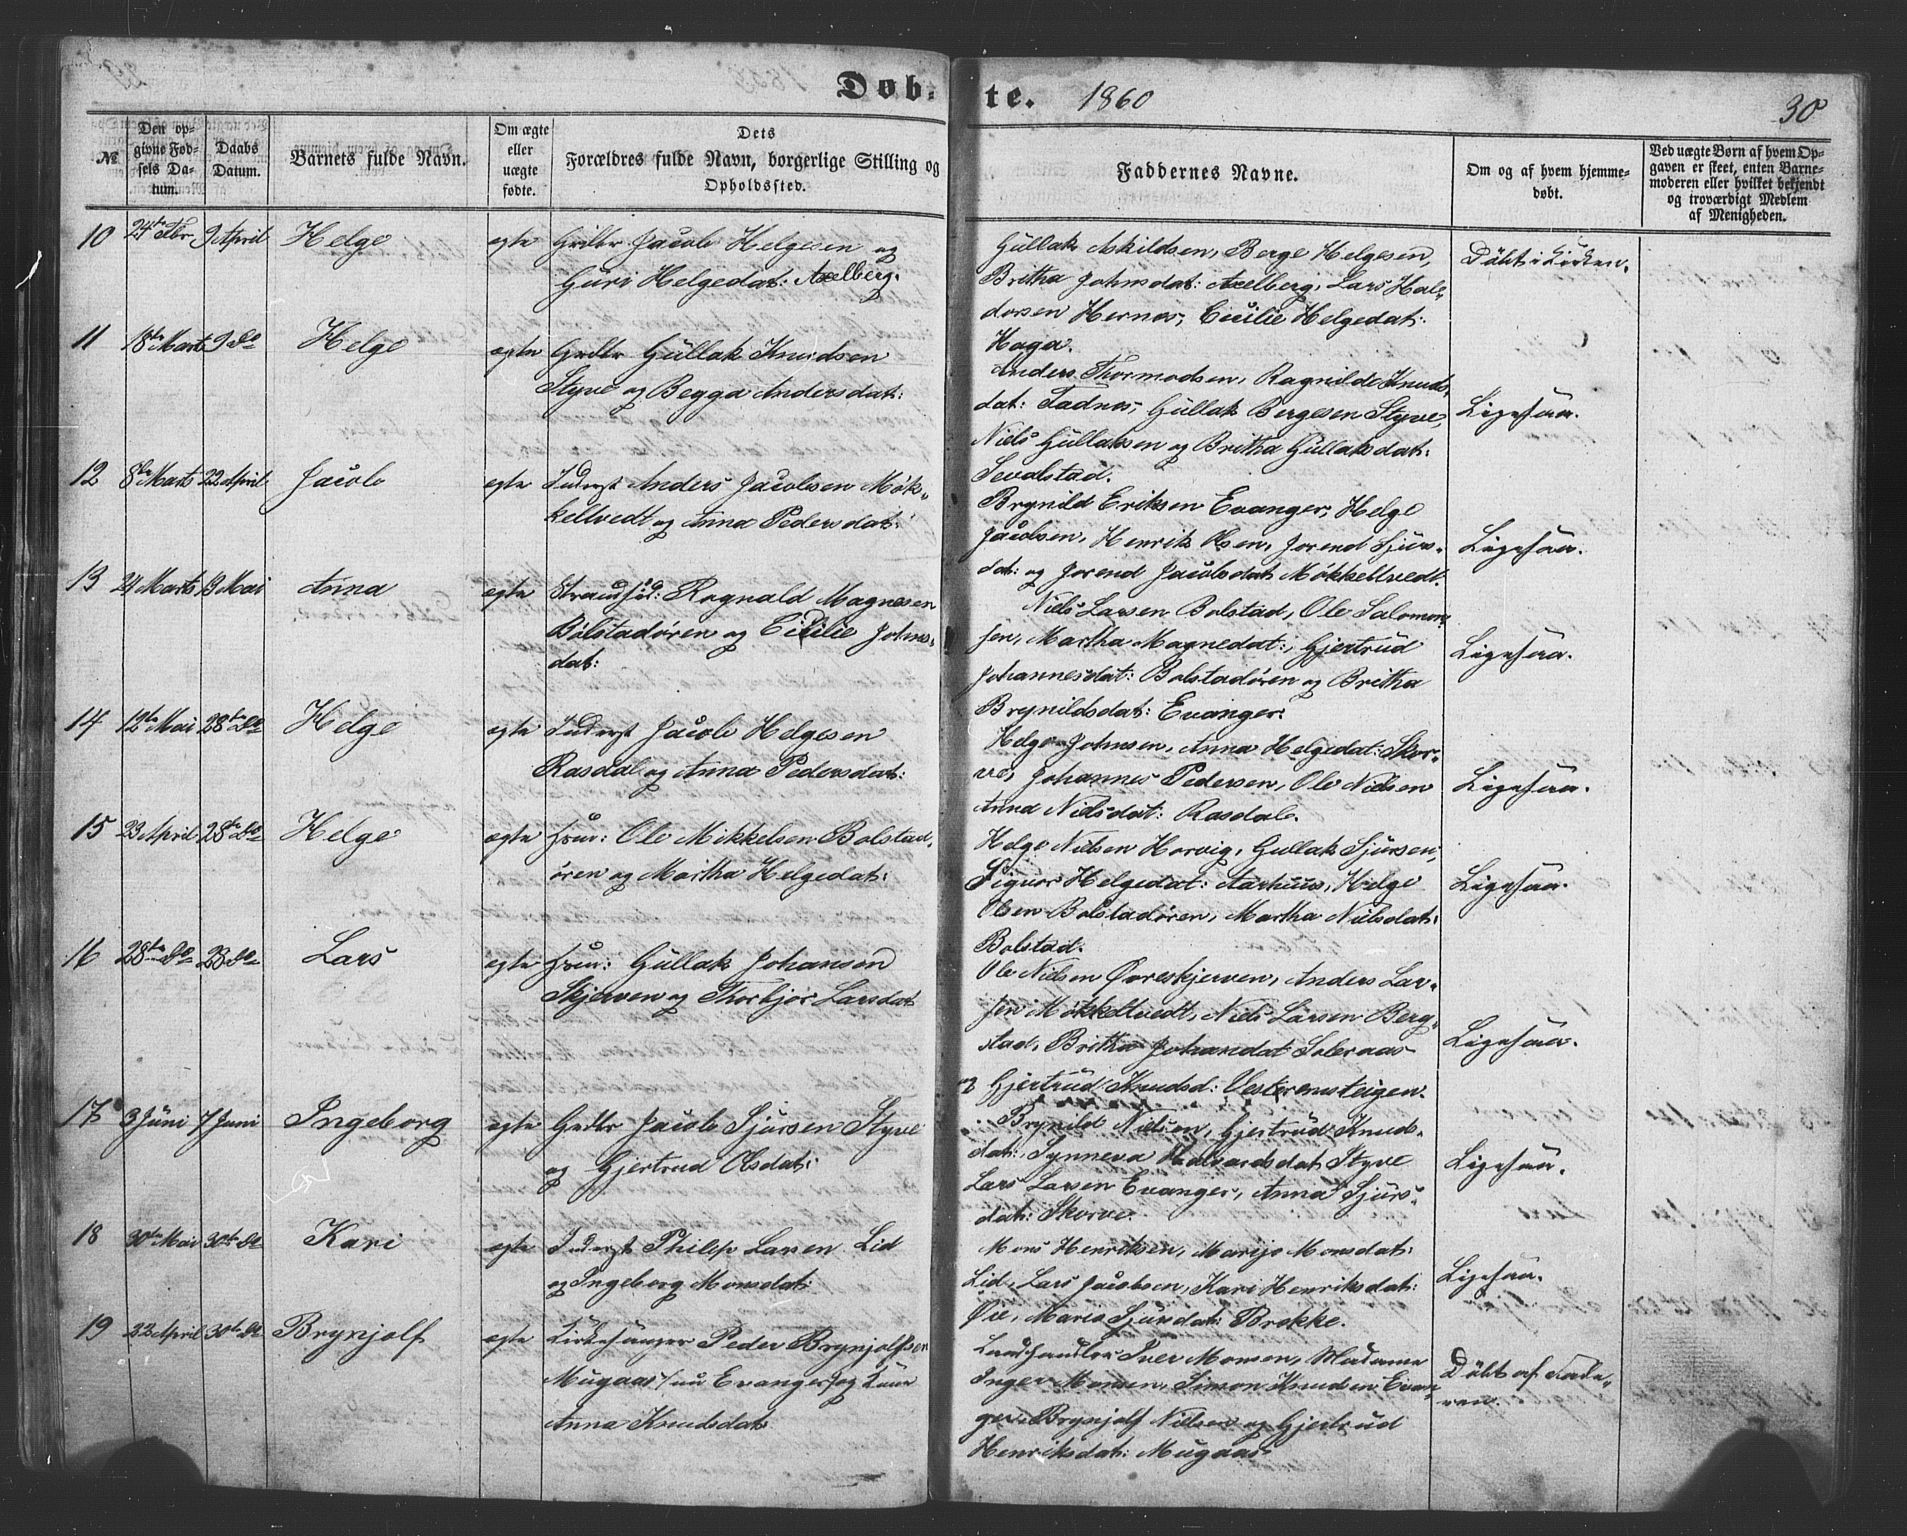 Døb-te. 1860
30
№
Den opgivne Fødsels Datum.
Daabs Datum.
Barnets fulde Navn.
Om ægte eller uægte fødte.
Dets Forældres fulde Navn, borgerlige Stilling og Opholdssted.
Faddernes Navne.
Om og af hvem hjemmedøbt.
Ved uægte Børn af hvem Opgaven er skeet, enten Barnemoderen eller hvilket bekjendt og troværdigt Medlem af Menigheden.
10 24de Fbr 9 April Helge egte Grdbr Jacob Helgesen og
Guri Helgedat: Axelberg.
Gullak Askildsen, Berge Helgesen,
Britha Johnsdat: Axelberg, Lars Hal-
dorsen Hernes, Cicilie Helgedat:
Haga.
Døbt i Kirken.
11 18de Marts 9 do Helge egte Grdbr Gullak Knudsen
Styve og Begga Andersdat:
Anders Thormodsen, Ragnilde Knuds-
dat: Fadnes, Gullak Bergesen Styve,
Niels Gullaksen og Britha Gullaksdat:
Sevalstad.
Ligesaa.
12 8de Marts 22 April Jacob egte Inderst Anders Jacobsen Møk-
keltvedt og Anna Pedersdat:
Brynild Eriksen Evanger, Helge
Jacobsen, Henrik Olsen, Jorend Sjurs-
dat: og Jorend Jacobsdat Møkkeltvedt.
Ligesaa.
13 24 Marts 13 Mai Anna egte Strandsid: Rognald Magnesen
Bolstadøren og Cicilie Johns-
dat:
Niels Larsen Bolstad, Ole Salomon-
sen, Martha Magnedat:, Gjertrud
Johannesdat: Bolstadøren og Britha
Brynildsdat: Evanger.
Ligesaa.
14 12te Mai 28de do Helge egte Inderst Jacob Helgesen
Rasdal og Anna Pedersdat:
Helge Johnsen, Anna Helgedat: Skor-
ve, Johannes Pedersen, Ole Nielsen
Anna Nielsdat: Rasdale.
Ligesaa.
15 23 April 28de do Helge egte Huus: Ole Mikkelsen Bolstad-
øren og Martha Helgedat:
Helge Nielsen Horvig, Gullak Sjursen,
Signor Helgedat: Aarhuus, Helge
Olsen Bolstadøren, Martha Nielsdat:
Bolstad.
Ligesaa.
16 28de do 28 do Lars egte Huus: Gullak Johansen
Skjerven og Thorbjør Larsdat
Ole Nielsen Øvreskjerven, Anders Lar-
sen Møkkeltvedt, Niels Larsen Berg-
stad, Britha Johandat Soleraas
og Gjertrud Knudsd: Vesteremsteigen.
Ligesaa.
17 3 Juni 7 Juni Ingeborg egte Grdbr Jacob Sjursen Styve
og Gjertrud Olsdat:
Brynild Nielsen, Gjertrud Knuds-
dat:, Synneva Halvardsdat Styve
Lars Larsen Evanger, Anna Sjurs-
dat: Skorve.
Ligesaa.
18 30te Mai 30te do Kari egte Inderst Philip Larsen Lid
og Ingeborg Monsdat:
Mons Henriksen, Marijo Monsdat:
Lid, Lars Jacobsen, Kari Henriksdat:
Øie, Maris Sjursdat: Brekke.
Ligesaa.
19 22 April 30te do Brynjolf egte Kirkesanger Peder Brynjolfsen
Mugaas /nu Evanger/ og Kone
Anna Knudsdat
Landhandler Iver Monsen, Madame
Inger Monsen, Simon Knudsen Evan-
ger, Brynjolf Nielsen og Gjertrud
Henriksdat: Mugaas
Døbt af Fade-
ren.